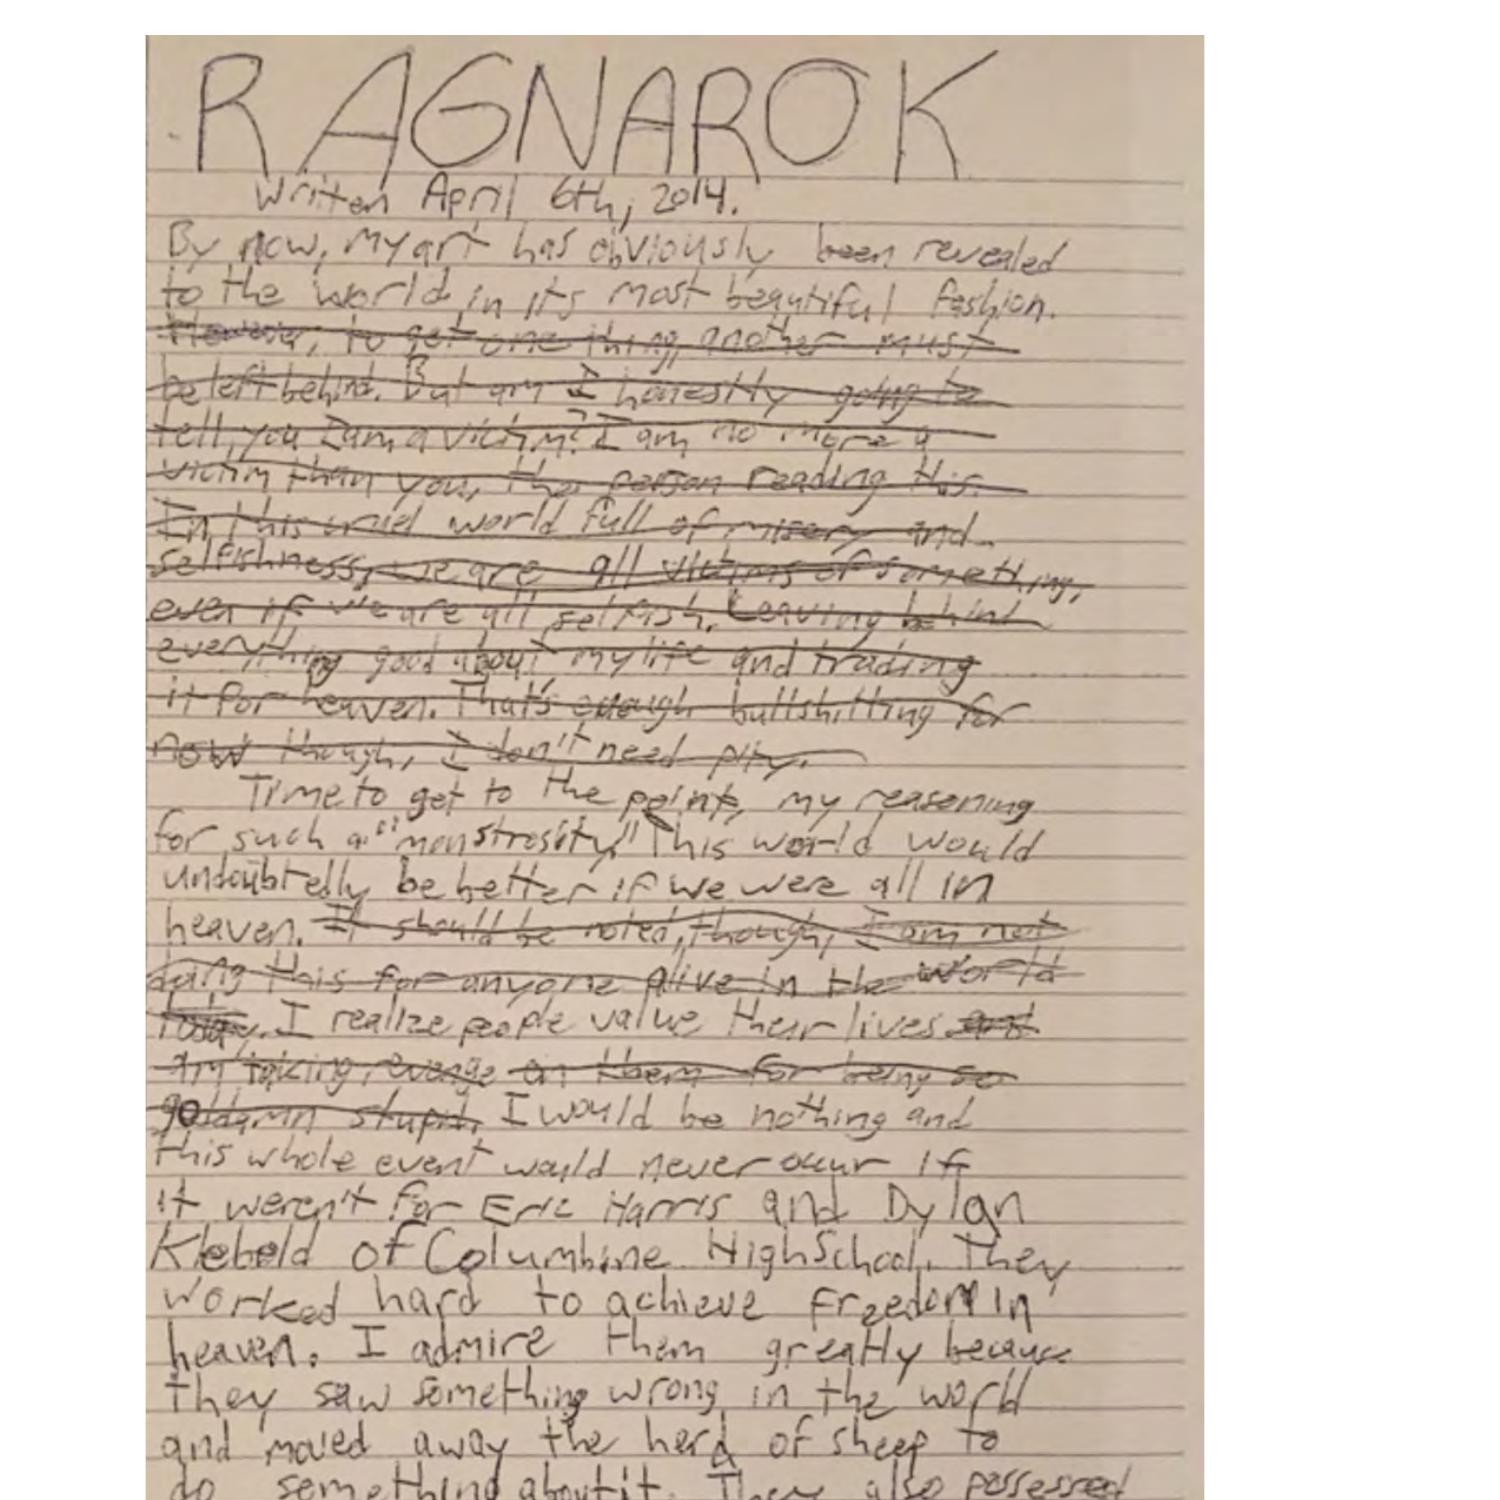 RAGNAROK
Written April 6th, 2014.
By now, my art has obviously been revealed
to the world in its most beautiful fashion.
However, to get one thing, another must
be left behind. But am I honestly going to
tell you I am a victim? I am no more a
victim than you, the person reading this.
In this cruel world full of misery and
selfishness, we are all victims of something,
even if we are all selfish. Leaving behind
everything good about my life and trading
it for heaven. That's enough bullshitting for
now though, I don't need pity.
Time to get to the point, my reasoning
for such a "monstrosity." This world would
undoubtedly be better if we were all in
heaven. It should be noted, though, I am not
doing this for anyone alive in the world
today. I realize people value their lives and
am taking revenge on them for being so
goddamn stupid. I would be nothing and
this whole event would never occur if
it weren't for Eric Harris and Dylan
Klebold of Columbine High School. They
worked hard to achieve freedom in
heaven. I admire them greatly because
they saw something wrong in the world
and moved away the herd of sheep to
do something about it. They also possessed